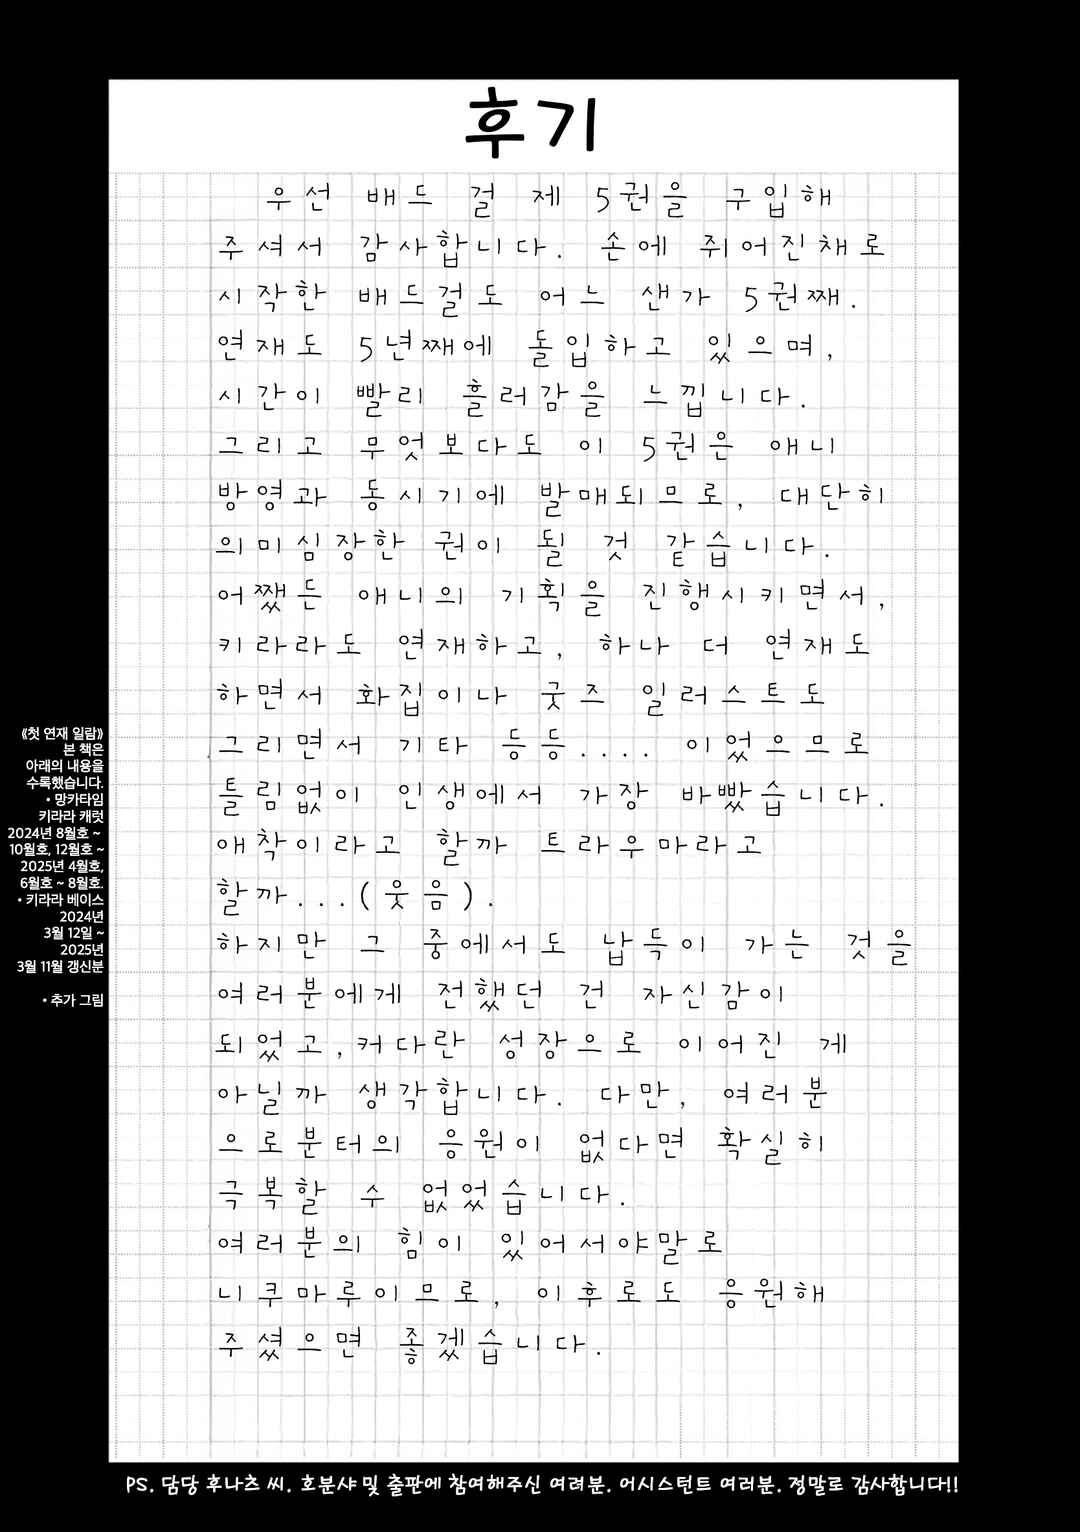 후기
우선 배드 걸 제 5권을 구입해
주셔서 감사합니다. 손에 쥐어진채로
시작한 배드걸도 어느 샌가 5권째.
연재도 5년째에 돌입하고 있으며,
시간이 빨리 흘러감을 느낍니다.
그리고 무엇보다도 이 5권은 애니
방영과 동시기에 발매되므로, 대단히
의미심장한 권이 될 것 같습니다.
어쨌든 애니의 기획을 진행시키면서,
키라라도 연재하고, 하나 더 연재도
하면서 화집이나 굿즈 일러스트도
그리면서 기타 등등.... 이었으므로
틀림없이 인생에서 가장 바빴습니다.
애착이라고 할까 트라우마라고
할까...(웃음).
하지만 그 중에서도 납득이 가는 것을
여러분에게 전했던 건 자신감이
되었고,커다란 성장으로 이어진 게
아닐까 생각합니다. 다만, 여러분
으로분터의 응원이 없다면 확실히
극복할 수 없었습니다.
여러분의 힘이 있어서야말로
니쿠마루이므로, 이후로도 응원해
주셨으면 좋겠습니다.
《첫 연재 일람》
본 책은
아래의 내용을
수록했습니다.
• 망카타임
키라라 캐럿
2024년 8월호 ~
10월호, 12월호 ~
2025년 4월호,
6월호 ~ 8월호.
• 키라라 베이스
2024년
3월 12일 ~
2025년
3월 11월 갱신분
• 추가 그림
PS. 담당 후나츠 씨. 호분샤 및 출판에 참여해주신 여려분. 어시스턴트 여러분. 정말로 감사합니다!!